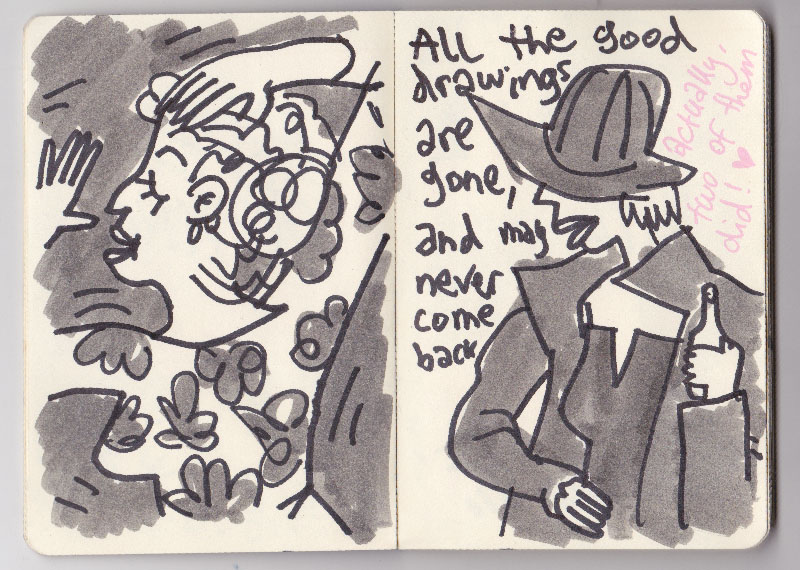 All the good
drawings
are
gone,
and may
never
come
back
Actually,
two of them
did! ♥